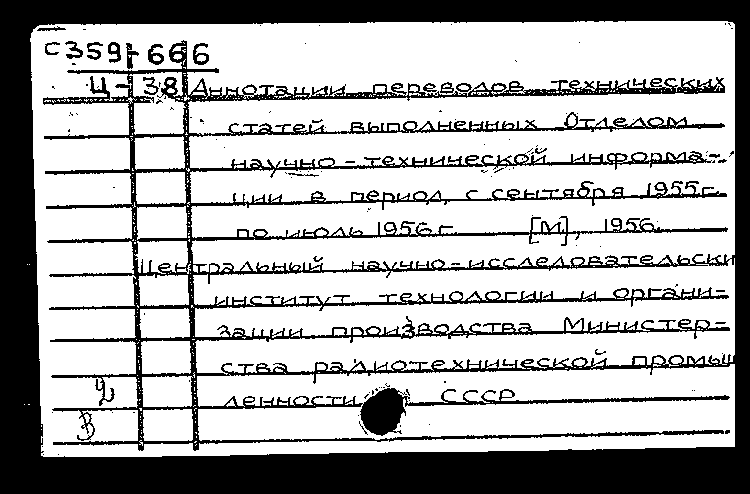 С359-666
Ц-38 Аннотации переводов технических
статей выполненных Отделом
научно-технической информа-
ции в период с сентября 1955г.
по июль 1956г. [М], 1956.
Центральный научно-исследовательски
институт технологии и органи-
зации производства Министер-
ства радиотехнической промыш
2
ленности СССР
В